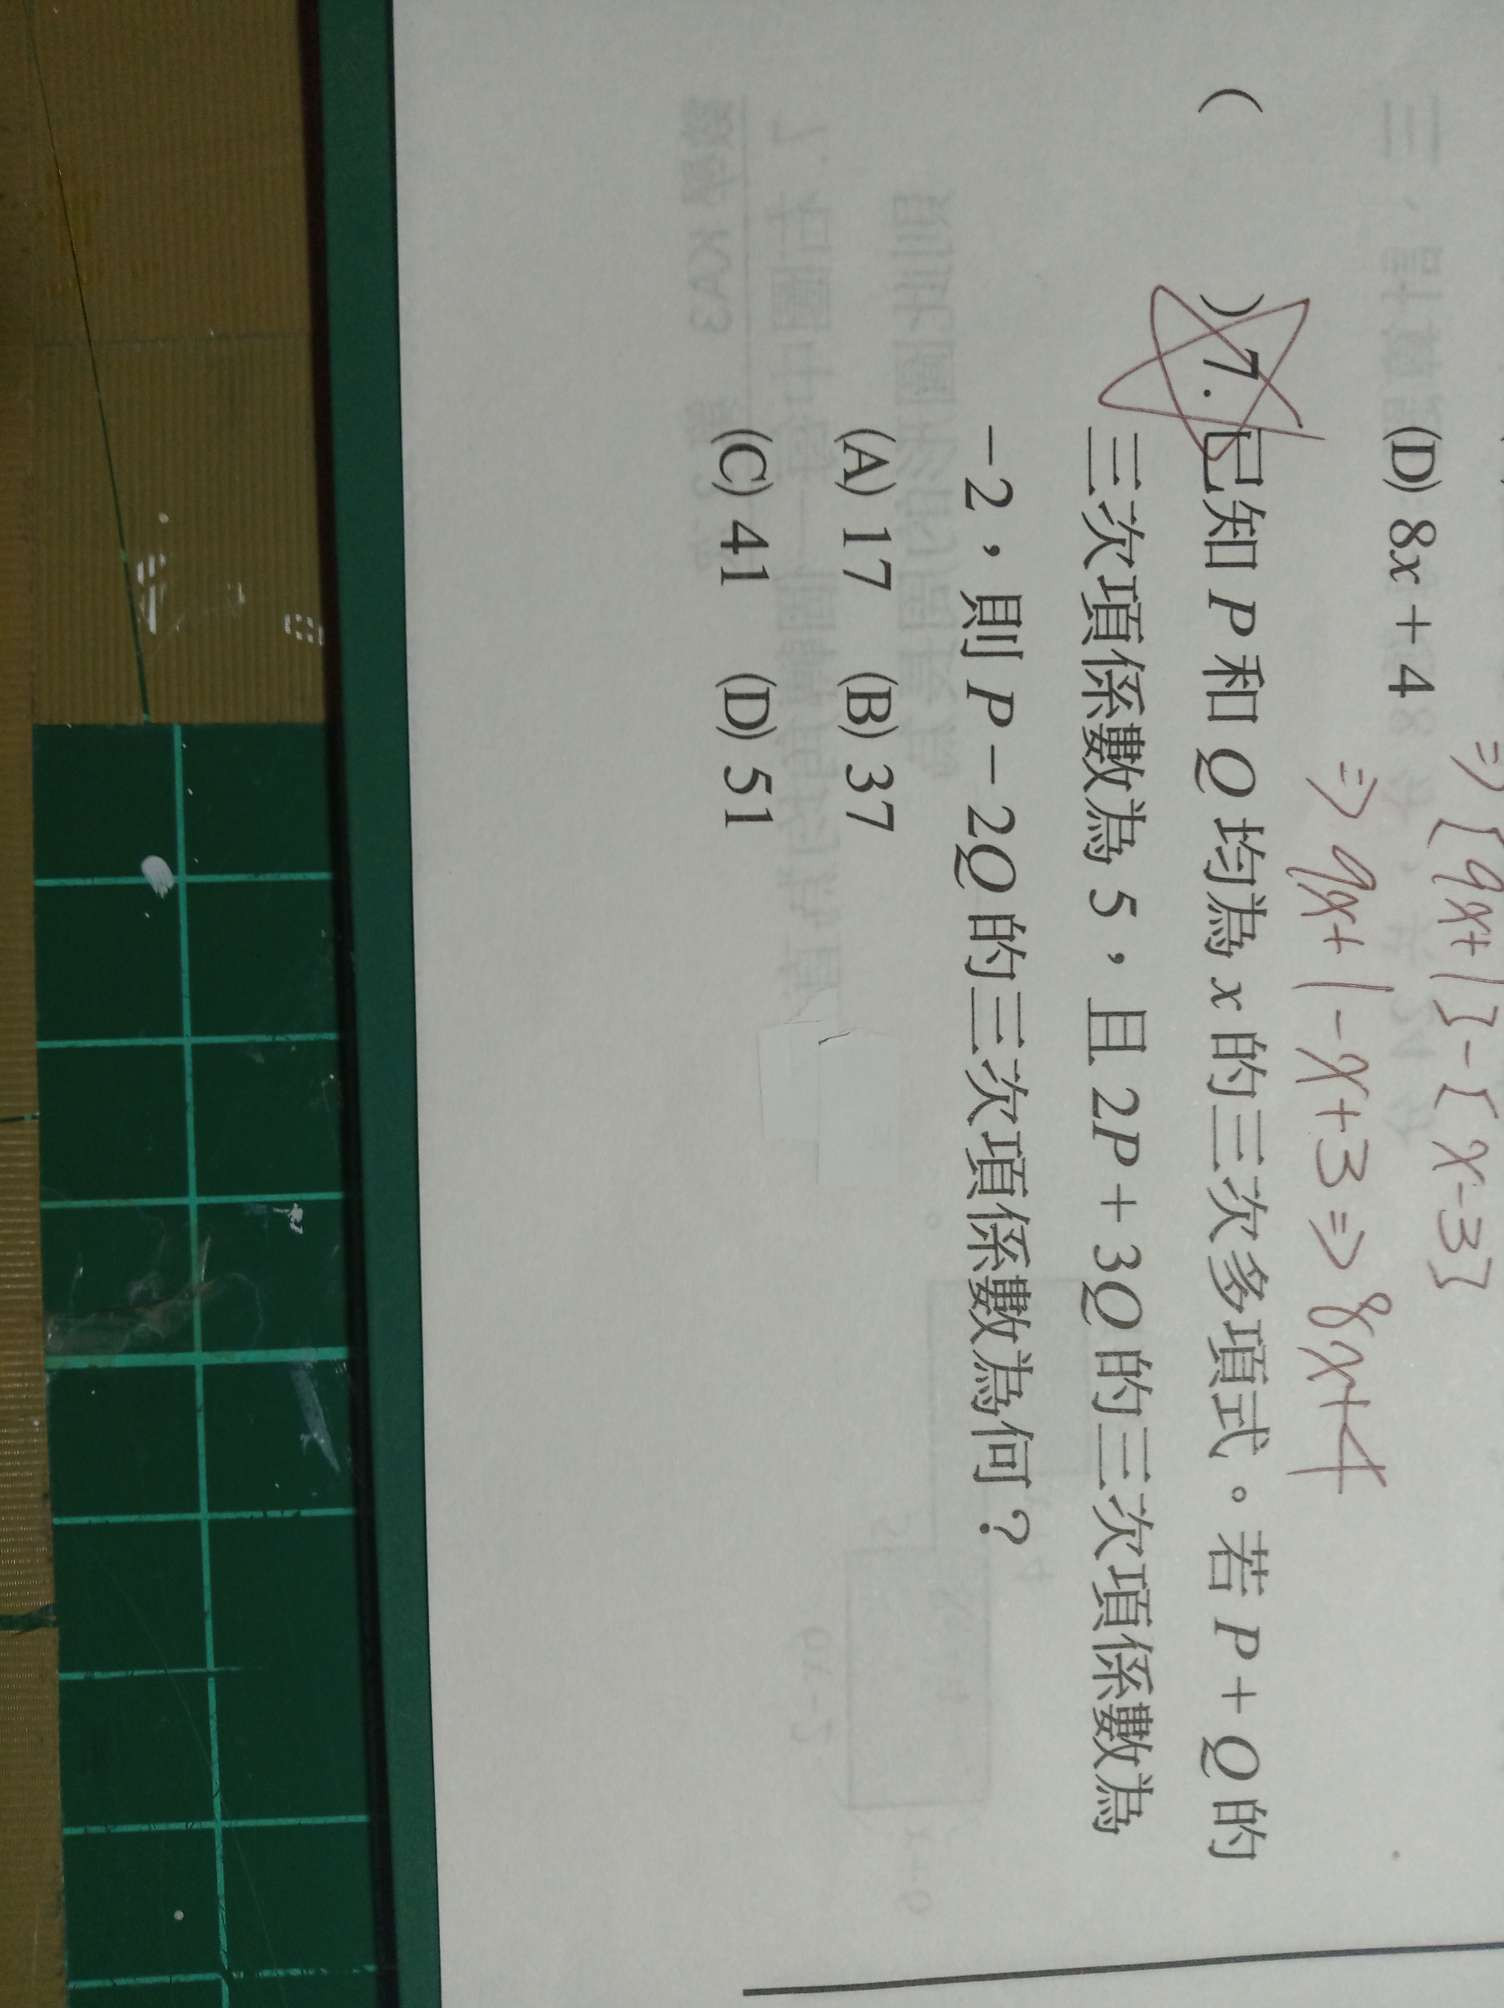 (D) 8x + 4
⇒ [9x+1] - [x-3]
⇒ 9x+1-x+3 ⇒ 8x+4
( ) 7. 已知 P 和 Q 均為 x 的三次多項式。若 P + Q 的
三次項係數為 5，且 2P + 3Q 的三次項係數為
－2，則 P － 2Q 的三次項係數為何？
(A) 17 (B) 37
(C) 41 (D) 51